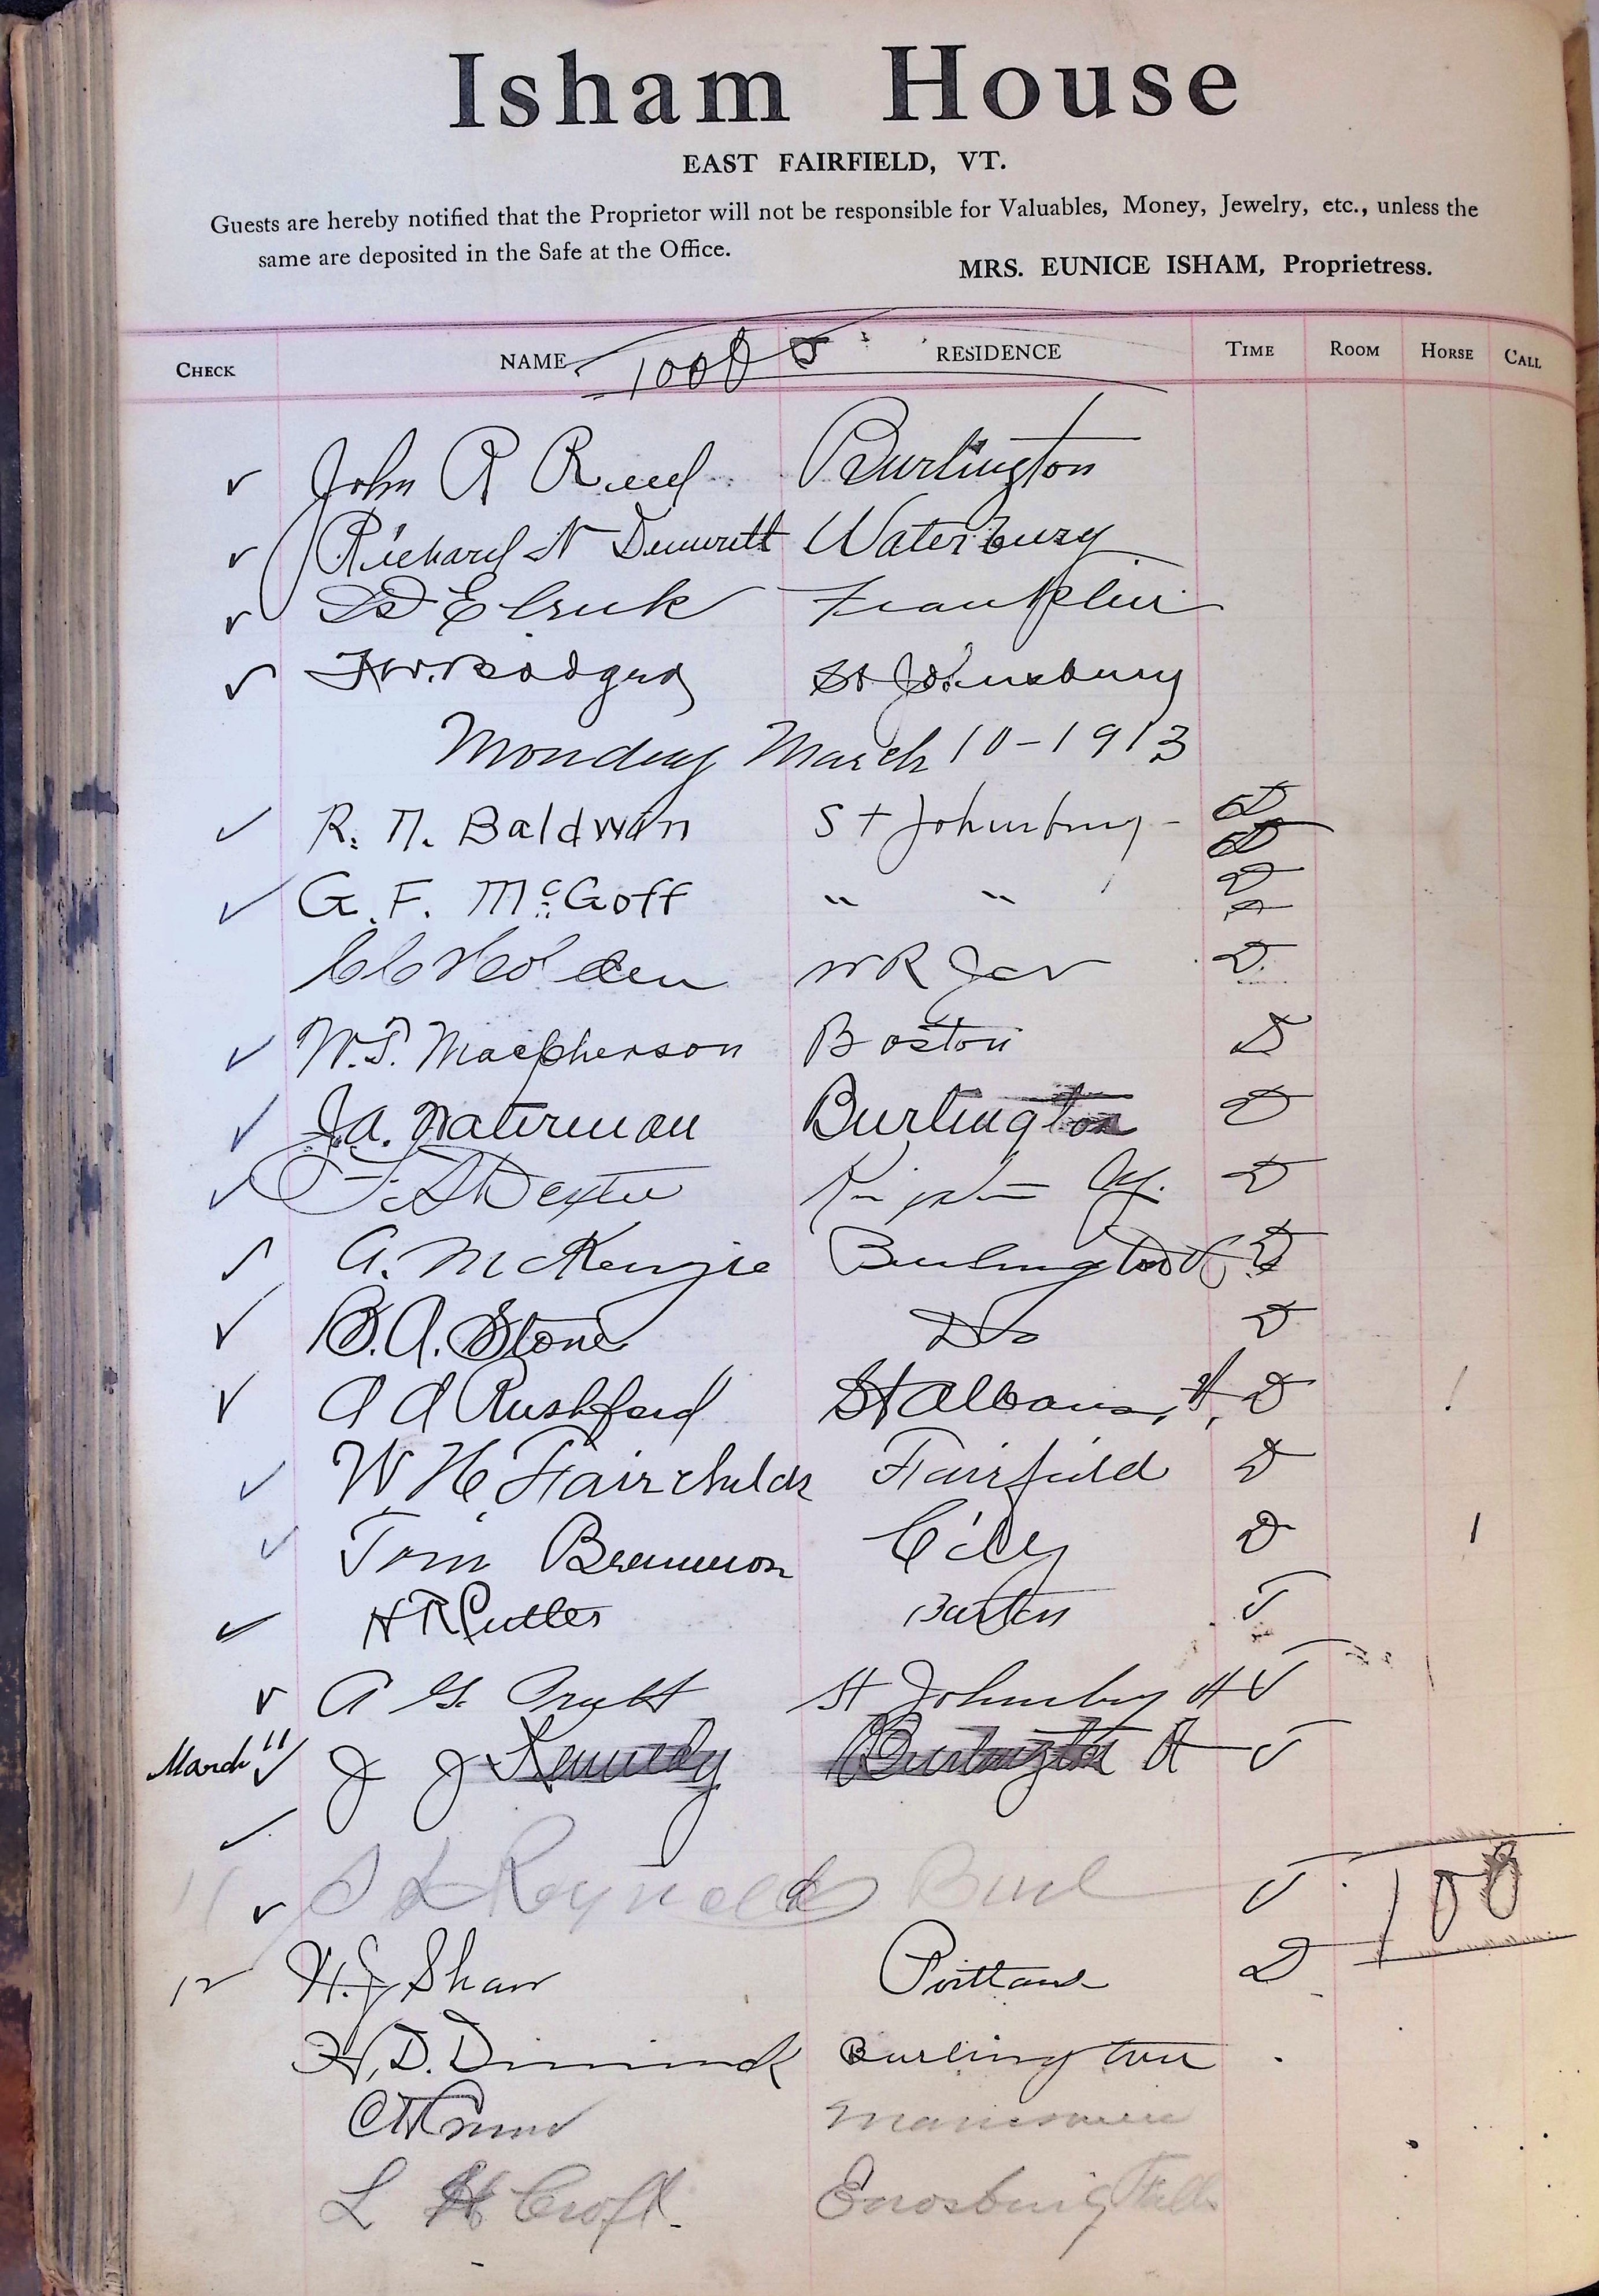 Isham House
EAST FAIRFIELD, VT.
Guests are hereby notified that the Proprietor will not be responsible for Valuables, Money, Jewelry, etc., unless the
same are deposited in the Safe at the Office.
MRS. EUNICE ISHAM, Proprietress.
CHECK NAME RESIDENCE TIME ROOM HORSE CALL
John A Reed Burlington
Richard N Demeritt Waterbury
Franklin
St Johnsbury
Monday March 10-1913
R. N. Baldwin St Johnsbury - D
G. F. McGoff " " D
Holden W R Jcn D
W.S. Macpherson Boston D
J.A. Waterman Burlington D
Dexter D
A. McKenzie Burlington D
B.A. Stone Do D
A A Rushford St Albans, H, D
W H Fairchilds Fairfield D
Tom Brennnon City D
H R Cutler Barton
A G. St Johnsbury H
March 11 J J Kennedy Burlington H
11 S L Reynolds Burl 100
12 H.J Shaw Portland D
H. D. Dimmick Burlington
L H Croft. Enosburg Falls